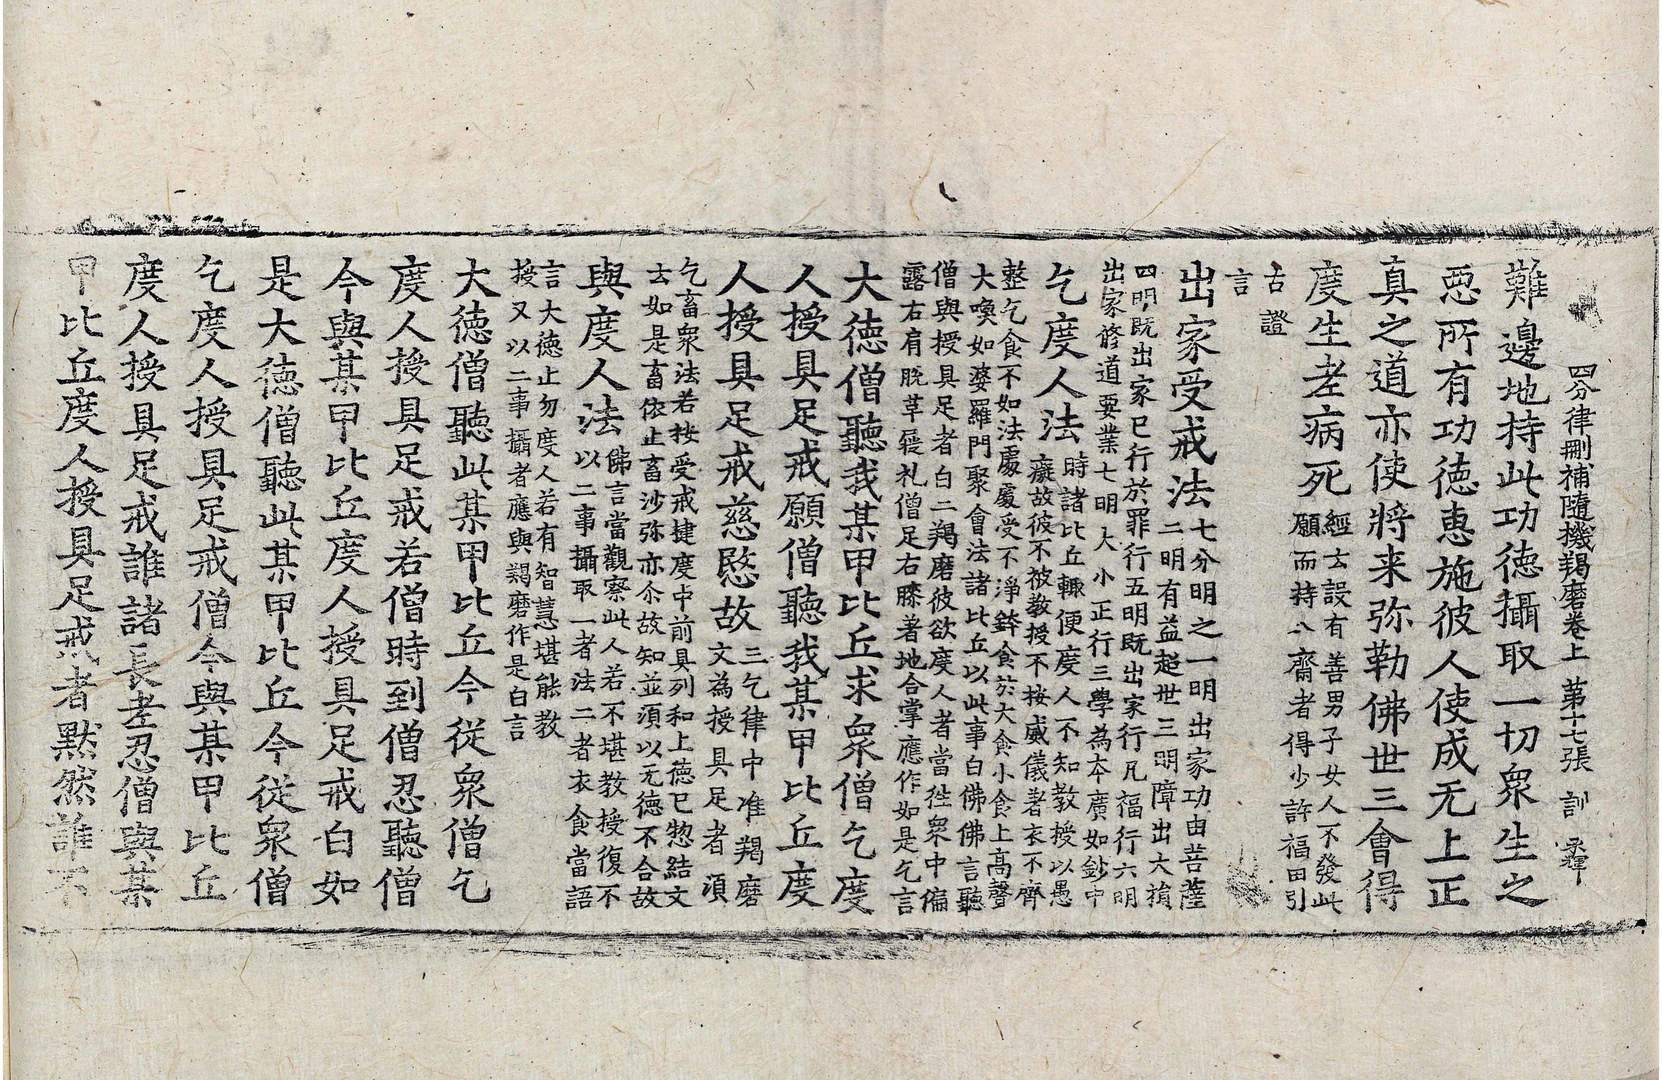 四分律刪補隨機羯磨卷上 第十七張 訓
難邊地持此功德攝取一切衆生之
惡所有功德惠施彼人使成无上正
真之道亦使將来弥勒佛世三會得
度生老病死
經云設有善男子女人不發此
願而持八齋者得少許福田引
古證
言
出家受戒法
七分明之一明出家功由菩薩
二明有益超世三明障出大損
四明既出家已行於罪行五明既出家行凡福行六明
出家修道要業七明大小正行三學為本廣如鈔中
乞度人法
時諸比丘輙便度人不知教授以愚
癡故彼不被教授不按威儀著衣不齊
整乞食不如法處處受不淨鉢食於大食小食上高聲
大喚如婆羅門聚會法諸比丘以此事白佛佛言聽
僧與授具足者白二羯磨彼欲度人者當徃衆中偏
露右肩脫草屣礼僧足右膝著地合掌應作如是乞言
大徳僧聽我某甲比丘求衆僧乞度
人授具足戒願僧聽我某甲比丘度
人授具足戒慈愍故
三乞律中准羯磨
文為授具足者湏
乞畜衆法若按受戒揵度中前具列和上德已惣結文
去如是畜依止畜沙弥亦尒故知並湏以无德不合故
與度人法
佛言當觀察此人若不堪教授復不
以二事攝取一者法二者衣食當語
言大德止勿度人若有智慧堪能教
授又以二事攝者應與羯磨作是白言
大徳僧聽此某甲比丘今從衆僧乞
度人授具足戒若僧時到僧忍聽僧
今與某甲比丘度人授具足戒白如
是大徳僧聽此某甲比丘今從衆僧
乞度人授具足戒僧今與某甲比丘
度人授具足戒誰諸長老忍僧與某
甲比丘度人授具足戒者黙然誰不